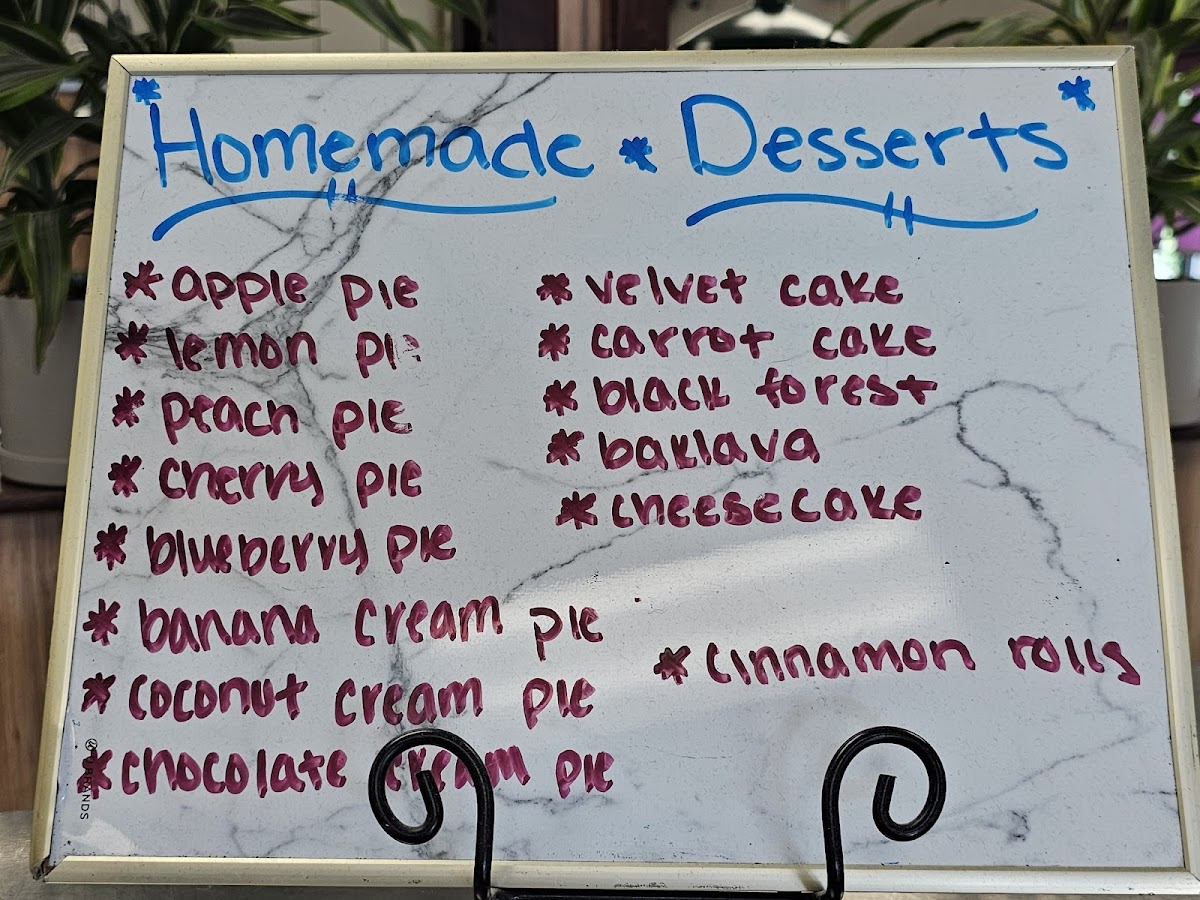 *Homemade * Desserts*
* apple pie
* lemon pie
* peach pie
* cherry pie
* blueberry pie
* banana cream pie
* coconut cream pie
* chocolate cream pie
* velvet cake
* carrot cake
* black forest
* baklava
* cheesecake
* cinnamon rolls